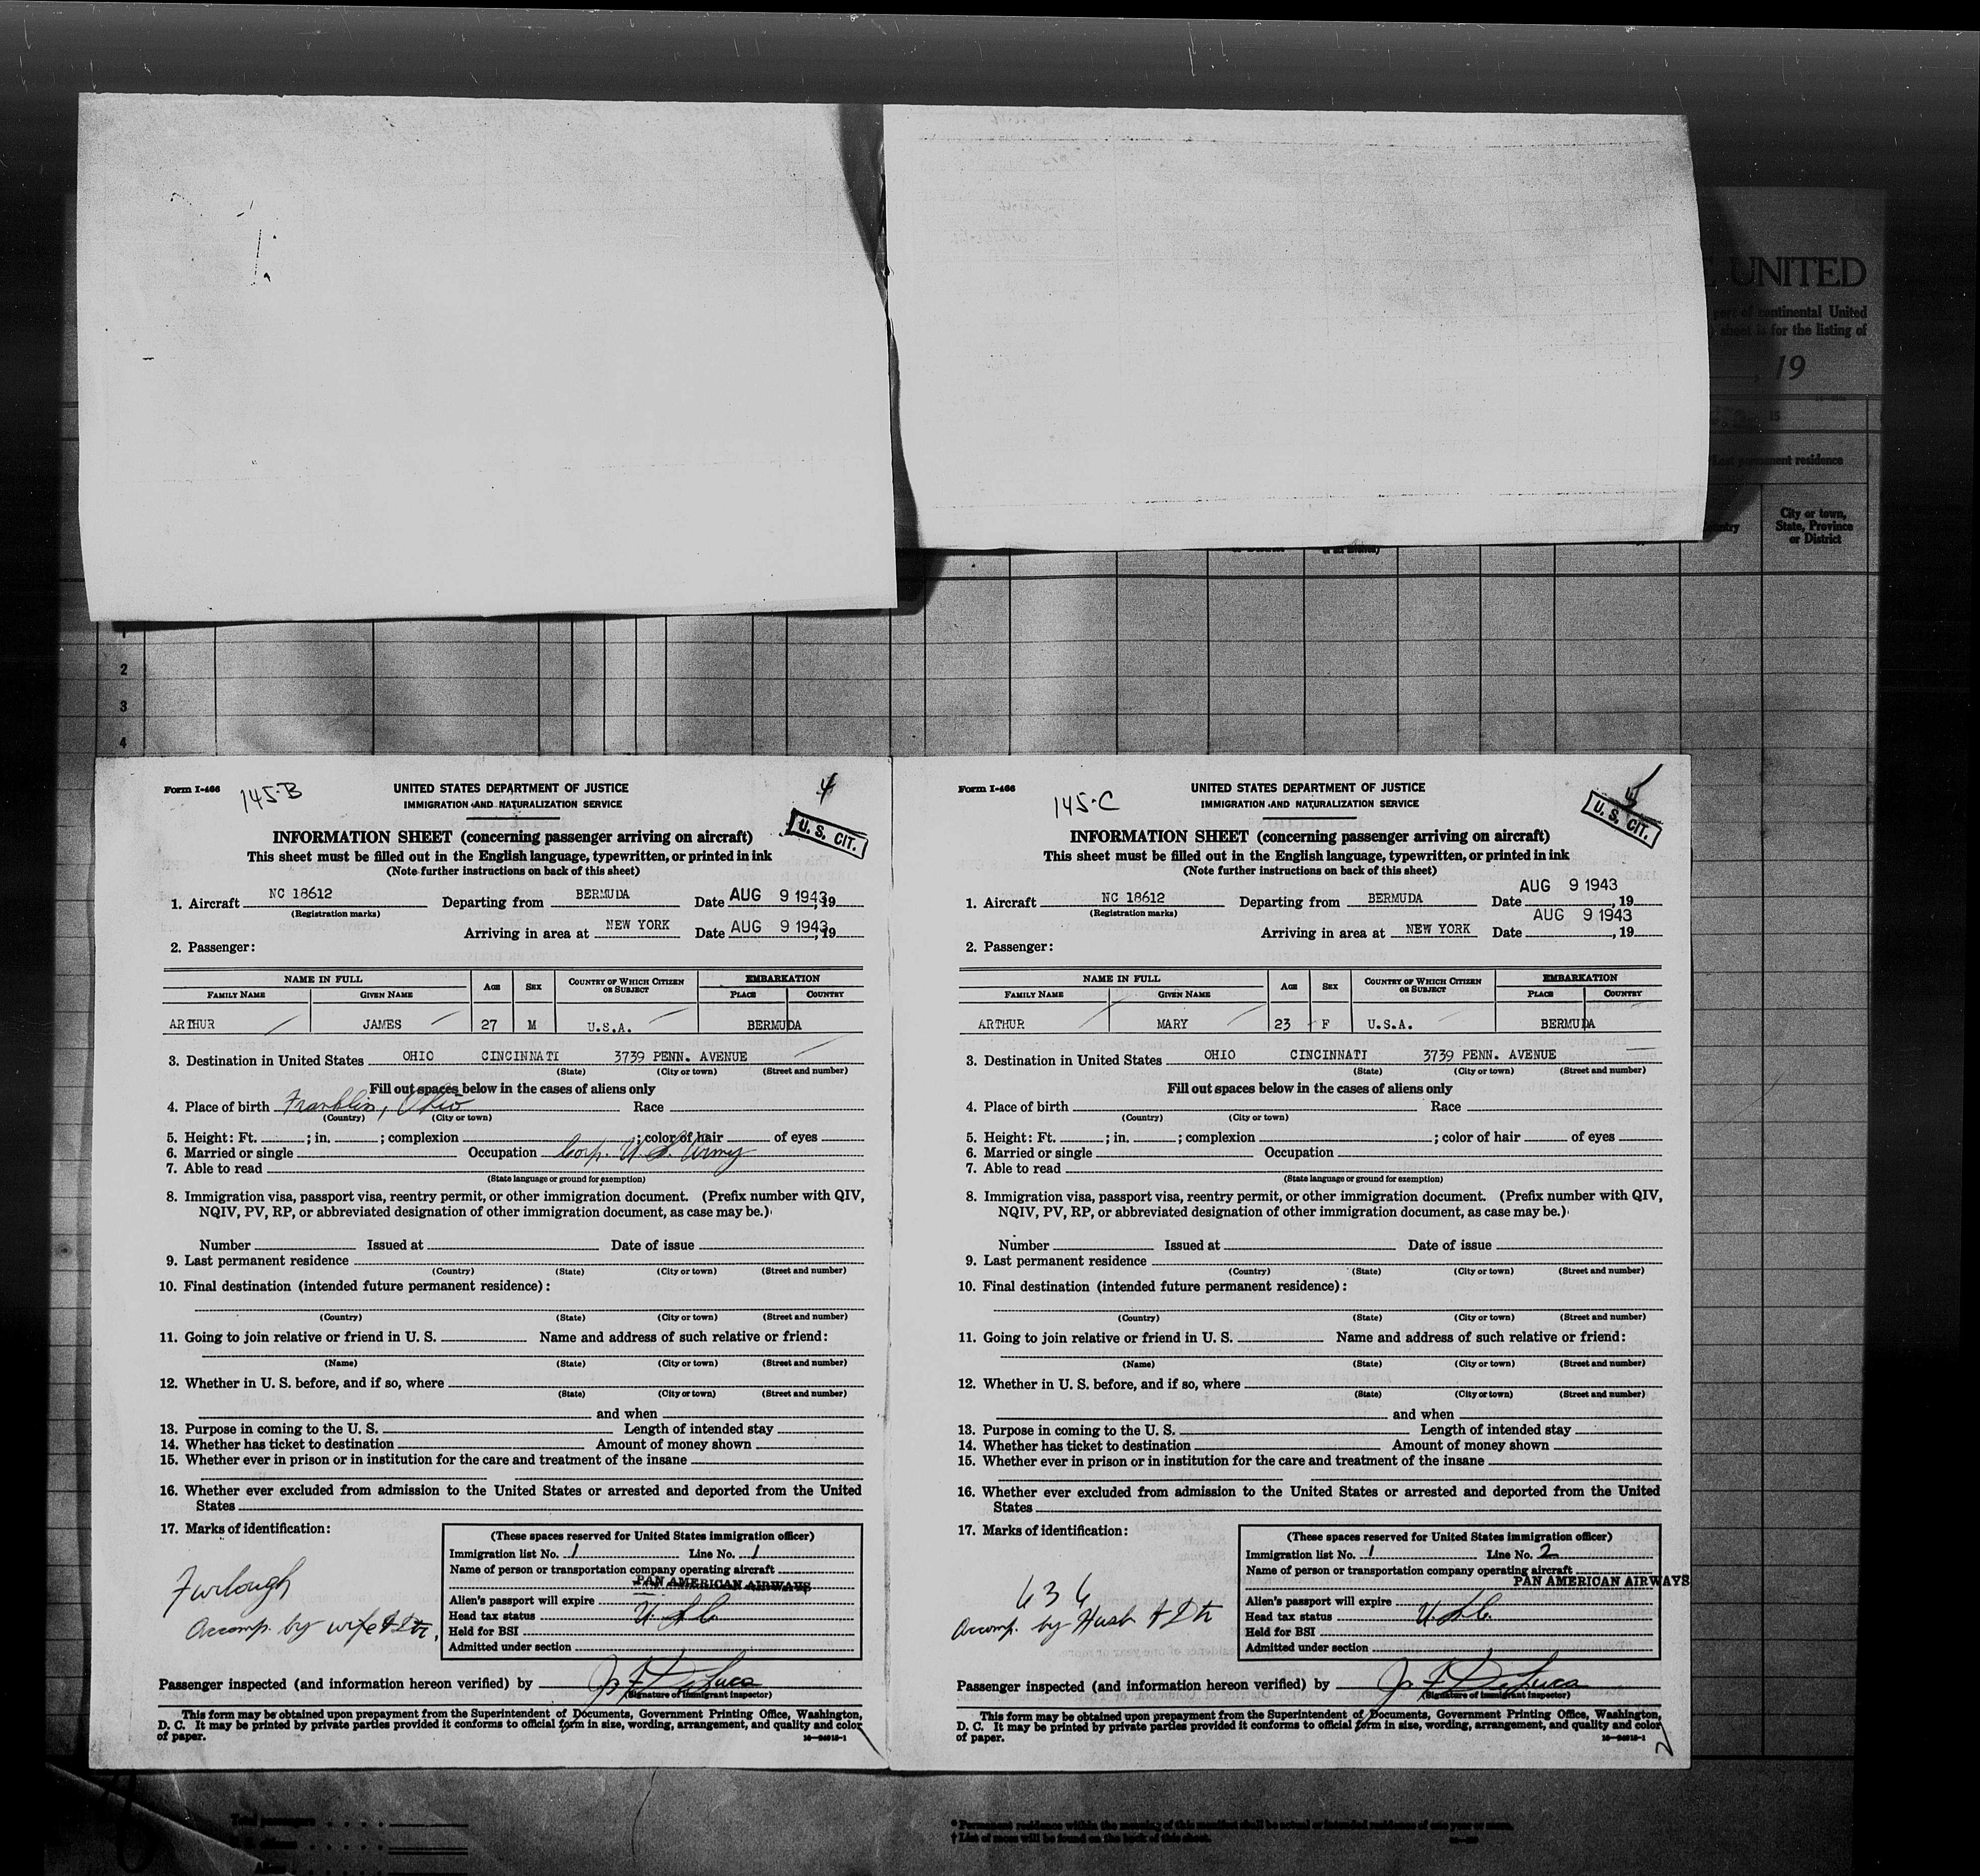 E UNITED
port of continental United
sheet is for the listing of
, 19
15
Last permanent residence
Country
City or town,
State, Province
or District
1
2
3
4
Form I-466
145-B
UNITED STATES DEPARTMENT OF JUSTICE
IMMIGRATION AND NATURALIZATION SERVICE
4
U. S. CIT.
INFORMATION SHEET (concerning passenger arriving on aircraft)
This sheet must be filled out in the English language, typewritten, or printed in ink
(Note further instructions on back of this sheet)
1. Aircraft NC 18612 Departing from BERMUDA Date AUG 9 1943, 19
(Registration marks)
Arriving in area at NEW YORK Date AUG 9 1943, 19
2. Passenger:
NAME IN FULL AGE SEX COUNTRY OF WHICH CITIZEN OR SUBJECT EMBARKATION
FAMILY NAME GIVEN NAME PLACE COUNTRY
ARTHUR JAMES 27 M U.S.A. BERMUDA
3. Destination in United States OHIO CINCINNATI 3739 PENN. AVENUE
(State) (City or town) (Street and number)
Fill out spaces below in the cases of aliens only
4. Place of birth Franklin, Ohio Race
(Country) (City or town)
5. Height: Ft. ; in. ; complexion ; color of hair of eyes
6. Married or single Occupation Corp. U.S. Army
7. Able to read
(State language or ground for exemption)
8. Immigration visa, passport visa, reentry permit, or other immigration document. (Prefix number with QIV,
NQIV, PV, RP, or abbreviated designation of other immigration document, as case may be.)
Number Issued at Date of issue
9. Last permanent residence
(Country) (State) (City or town) (Street and number)
10. Final destination (intended future permanent residence):
(Country) (State) (City or town) (Street and number)
11. Going to join relative or friend in U. S. Name and address of such relative or friend:
(Name) (State) (City or town) (Street and number)
12. Whether in U. S. before, and if so, where
(State) (City or town) (Street and number)
and when
13. Purpose in coming to the U. S. Length of intended stay
14. Whether has ticket to destination Amount of money shown
15. Whether ever in prison or in institution for the care and treatment of the insane
16. Whether ever excluded from admission to the United States or arrested and deported from the United
States
17. Marks of identification:
Furlough
Accomp. by wife & Dtr.
(These spaces reserved for United States immigration officer)
Immigration list No. 1 Line No. 1
Name of person or transportation company operating aircraft
PAN AMERICAN AIRWAYS
Alien's passport will expire
Head tax status U.S.C.
Held for BSI
Admitted under section
Passenger inspected (and information hereon verified) by
(Signature of immigrant inspector)
This form may be obtained upon prepayment from the Superintendent of Documents, Government Printing Office, Washington,
D. C. It may be printed by private parties provided it conforms to official form in size, wording, arrangement, and quality and color
of paper.
Form I-466
145-C
UNITED STATES DEPARTMENT OF JUSTICE
IMMIGRATION AND NATURALIZATION SERVICE
U. S. CIT.
INFORMATION SHEET (concerning passenger arriving on aircraft)
This sheet must be filled out in the English language, typewritten, or printed in ink
(Note further instructions on back of this sheet)
1. Aircraft NC 18612 Departing from BERMUDA Date AUG 9 1943, 19
(Registration marks)
Arriving in area at NEW YORK Date AUG 9 1943, 19
2. Passenger:
NAME IN FULL AGE SEX COUNTRY OF WHICH CITIZEN OR SUBJECT EMBARKATION
FAMILY NAME GIVEN NAME PLACE COUNTRY
ARTHUR MARY 23 F U.S.A. BERMUDA
3. Destination in United States OHIO CINCINNATI 3739 PENN. AVENUE
(State) (City or town) (Street and number)
Fill out spaces below in the cases of aliens only
4. Place of birth Race
(Country) (City or town)
5. Height: Ft. ; in. ; complexion ; color of hair of eyes
6. Married or single Occupation
7. Able to read
(State language or ground for exemption)
8. Immigration visa, passport visa, reentry permit, or other immigration document. (Prefix number with QIV,
NQIV, PV, RP, or abbreviated designation of other immigration document, as case may be.)
Number Issued at Date of issue
9. Last permanent residence
(Country) (State) (City or town) (Street and number)
10. Final destination (intended future permanent residence):
(Country) (State) (City or town) (Street and number)
11. Going to join relative or friend in U. S. Name and address of such relative or friend:
(Name) (State) (City or town) (Street and number)
12. Whether in U. S. before, and if so, where
(State) (City or town) (Street and number)
and when
13. Purpose in coming to the U. S. Length of intended stay
14. Whether has ticket to destination Amount of money shown
15. Whether ever in prison or in institution for the care and treatment of the insane
16. Whether ever excluded from admission to the United States or arrested and deported from the United
States
17. Marks of identification:
636
Accomp. by Husb & Dtr
(These spaces reserved for United States immigration officer)
Immigration list No. 1 Line No. 2
Name of person or transportation company operating aircraft
PAN AMERICAN AIRWAYS
Alien's passport will expire
Head tax status U.S.C.
Held for BSI
Admitted under section
Passenger inspected (and information hereon verified) by
(Signature of immigrant inspector)
This form may be obtained upon prepayment from the Superintendent of Documents, Government Printing Office, Washington,
D. C. It may be printed by private parties provided it conforms to official form in size, wording, arrangement, and quality and color
of paper.
Total passengers
* Permanent residence within the meaning of this manifest shall be actual or intended residence of one year or more.
† List of races will be found on the back of this sheet.